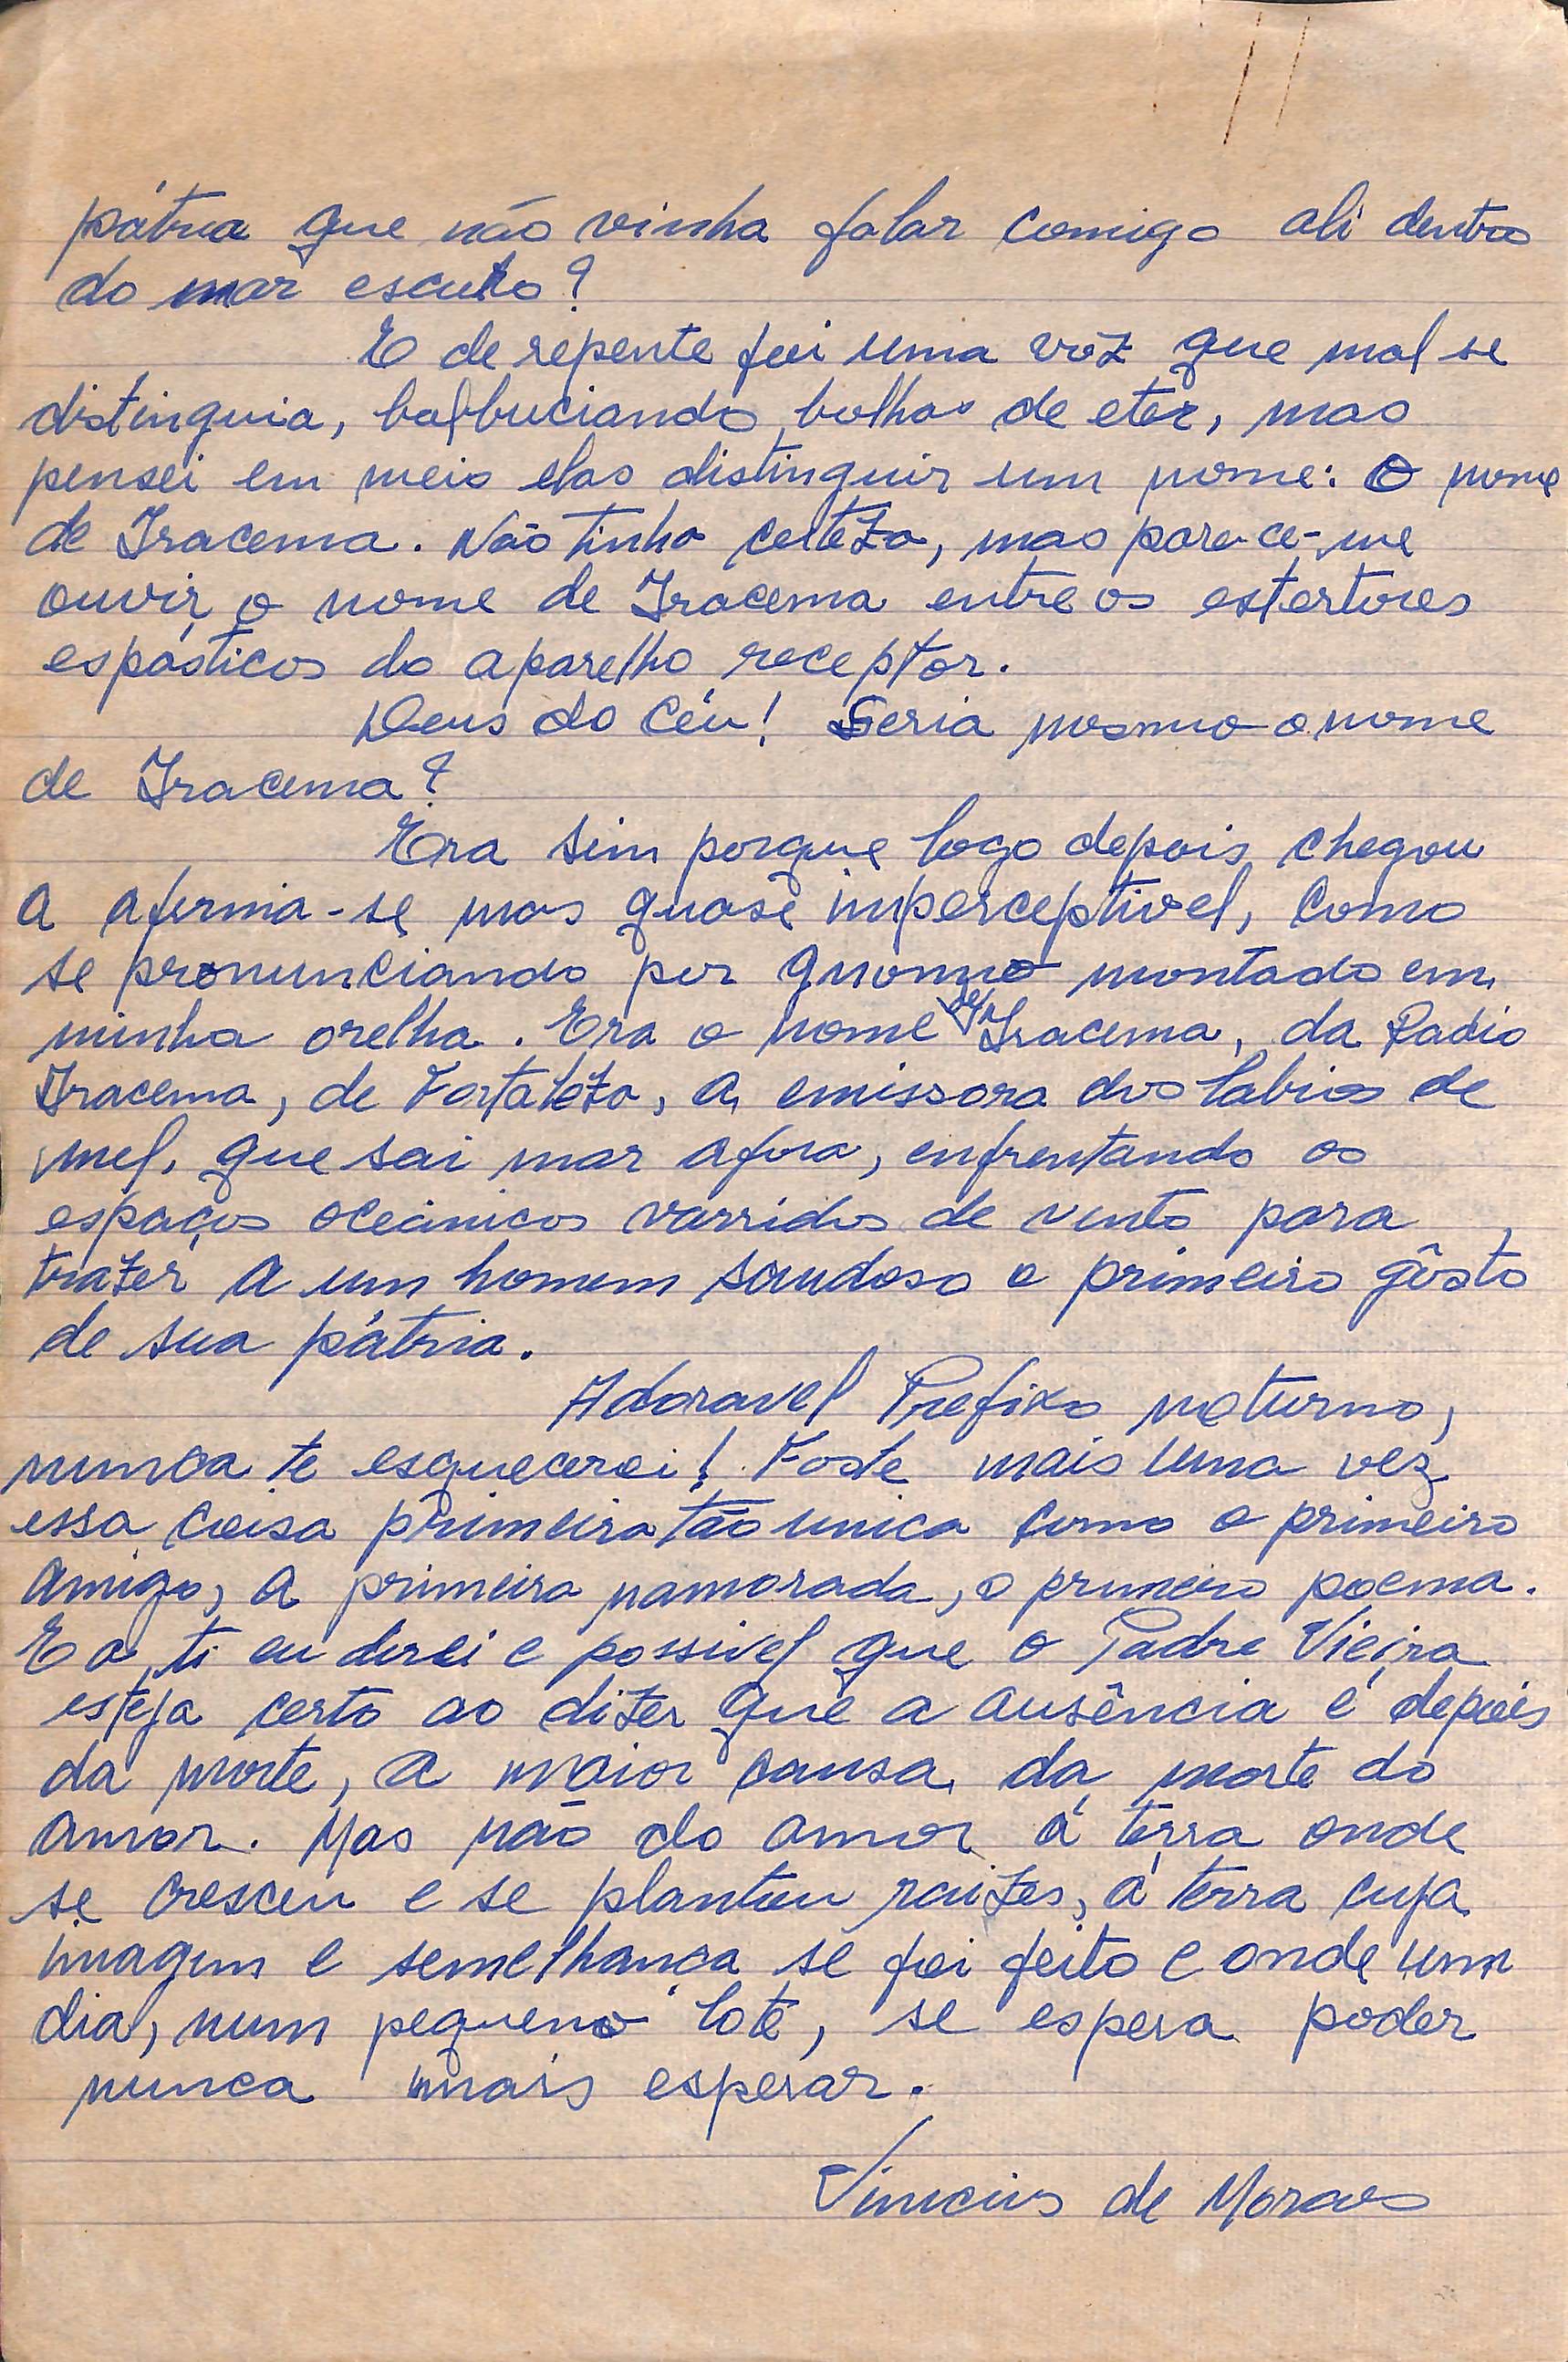 pátria que não vinha falar comigo ali dentro
do mar escuro?
E de repente foi uma voz que mal se
distinguia, balbuciando bolhas de eter, mas
pensei em meio elas distinguir um nome: O nome
de Iracema. Não tinha certeza, mas parece-me
ouvir o nome de Iracema entre os estertores
espásticos do aparelho receptor.
Deus do Céu! Seria mesmo o nome
de Iracema?
Era sim porque logo depois chegou
a aferma-se mas quase imperceptivel, como
se pronunciando por gnomo montado em
minha orelha. Era o nome de Iracema, da Radio
Iracema, de Fortaleza, a emissora dos labios de
mel, que sai mar afora, enfrentando os
espaços oceânicos varridos de vento para
trazer a um homem saudoso o primeiro gôsto
de sua pátria.
Adoravel Prefixo noturno,
nunca te esquecerei! Foste mais uma vez
essa coisa primeira tão unica como o primeiro
amigo, a primeira namorada, o primeiro poema.
E a ti eu direi e possivel que o Padre Vieira
esteja certo ao dizer que a ausência é depois
da morte, a maior causa da morte do
amor. Mas não do amor á terra onde
se cresceu e se plantou raizes, á terra cuja
imagem e semelhança se foi feito e onde um
dia, num pequeno lote, se espera poder
nunca mais esperar.
Vinicius de Moraes